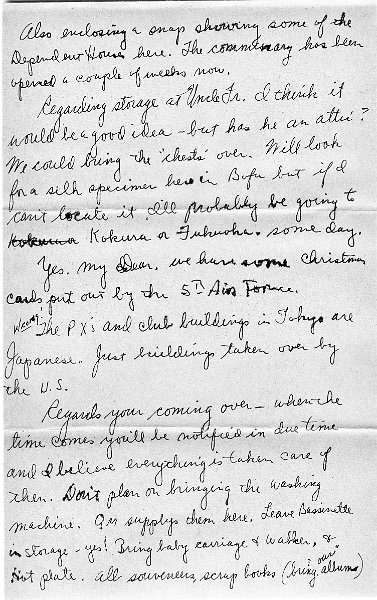 Also enclosing a snap showing some of the
Dependent Houses here. The commissary has been
opened a couple of weeks now.
Regarding storage at Uncle Fr. I think it
would be a good idea - but has he an attic?
We could bring the "chests" over. Will look
for a silk specimen here in Bofu but if I
can't locate it I'll probably be going to
Kokura or Fukuoka some day.
Yes, my Dear, we have some Christmas
cards put out by the 5th Air Force.
The PX's and club buildings in Tokyo are
Japanese. Just buildings taken over by
the U.S.
Regards your coming over - when the
time comes you'll be notified in due time
and I believe everything is taken care of
then. Don't plan on bringing the washing
machine. Qrs supplys them here. Leave Bassinette
in storage - yes! Bring baby carriage & walker, &
Hot plate. All souvenirs, scrap books (bring our albums)